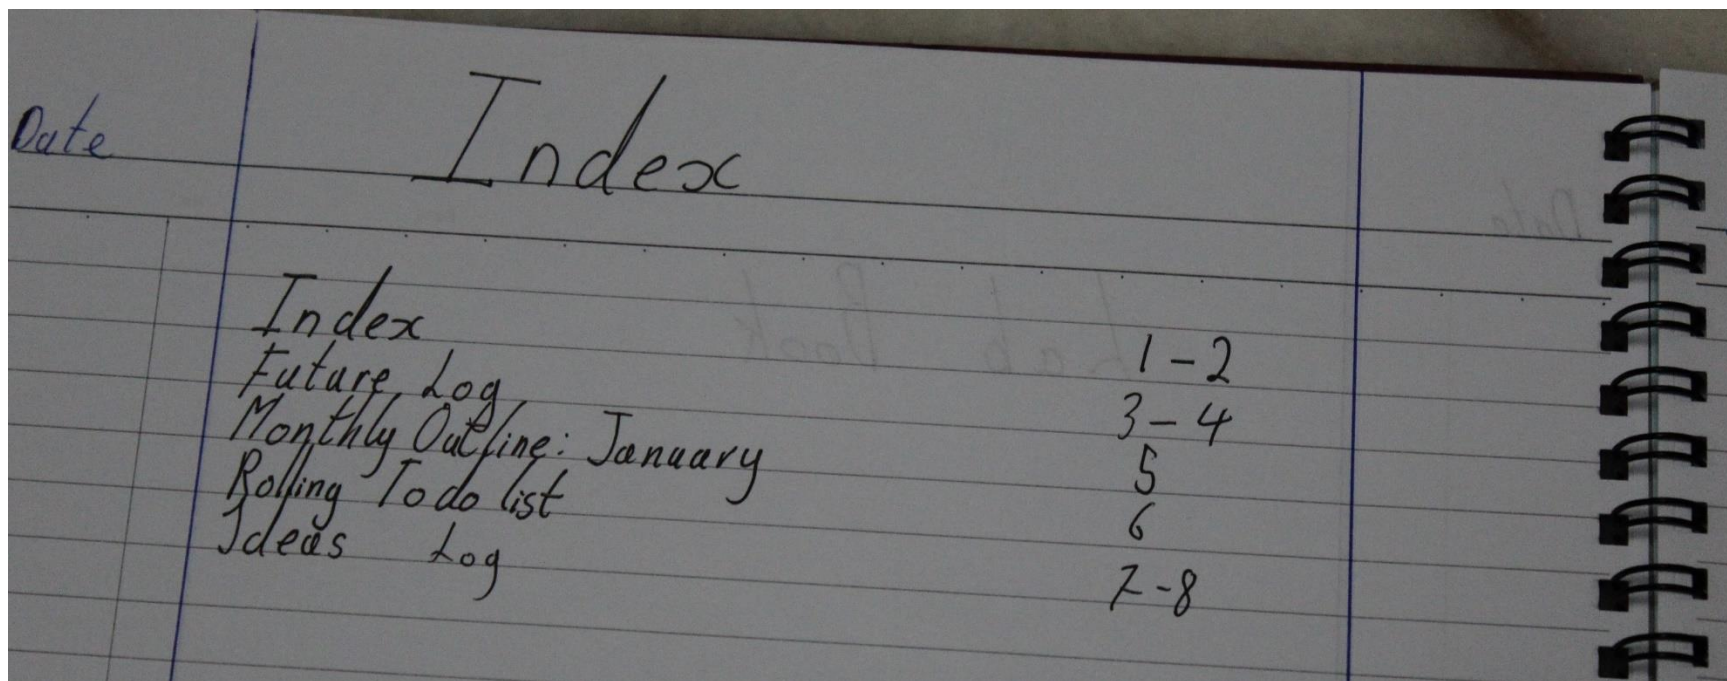 Date Index
Index 1-2
Future Log 3-4
Monthly Outline: January 5
Rolling To do list 6
Ideas Log 7-8
Date
Lab Book